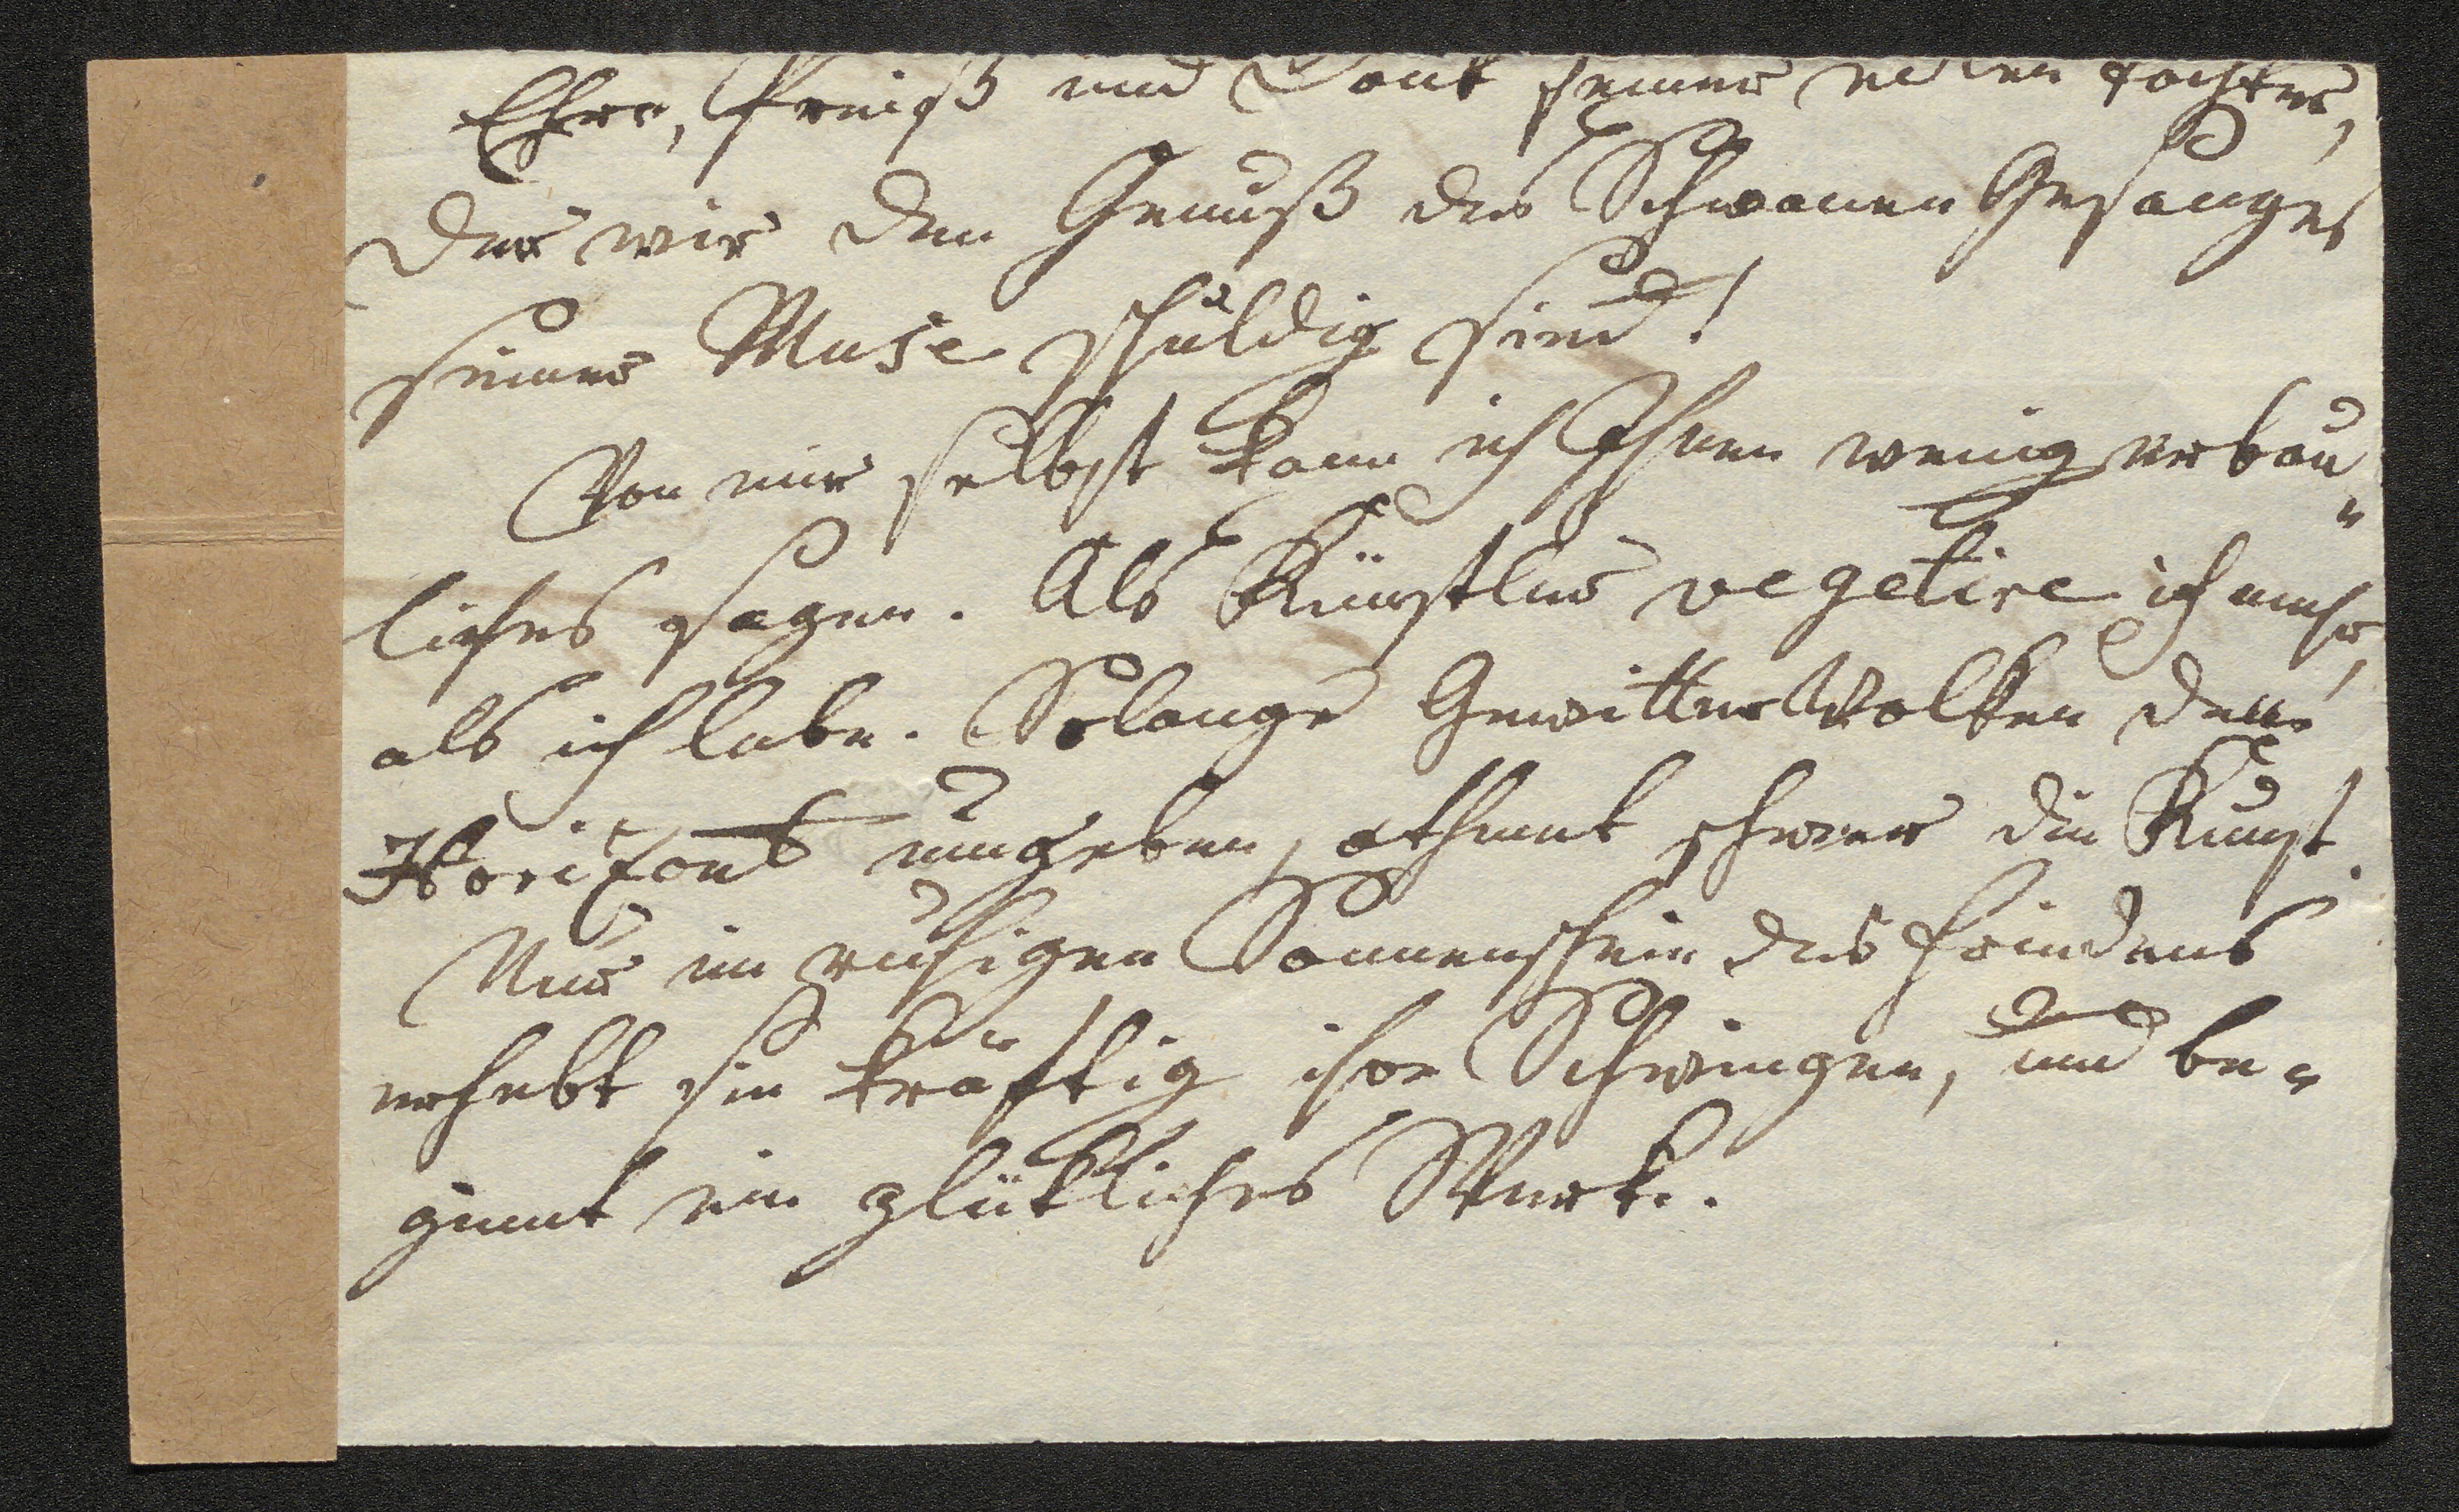 Ehre, Preiß und Dank seiner edlen Tochter,
der wir den Genuß des Schwanen Gesanges
seiner Muse schuldig sind!
Von mir selbst kann ich Ihnen wenig erbau„
liches sagen. Als Künstler vegetire ich mehr,
als ich lebe. Solange Gewitter Wolken den
Horizont umgeben, athmet schwer die Kunst.
Nur im ruhigen Sonnenschein des Friedens
erhebt sie kräftig ihre Schwingen, und be„
ginnt ein glükliches Werk.